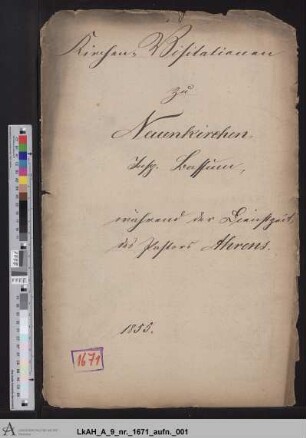 Kirchen Visitationen
zu
Neuenkirchen
Insp. Bassum,
während der Dienstzeit
des Pastors Ahrens.
1855.
1671
LkAH_A_9_nr._1671_aufn._001